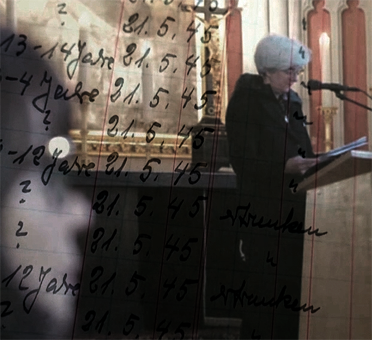 ? 21. 5. 45
13-14 Jahre 21. 5. 45
-4 Jahre 21. 5. 45
? 21. 5. 45
-12 Jahre 21. 5. 45
? 21. 5. 45 ertrunken
? 21. 5. 45 "
12 Jahre 21. 5. 45 ertrunken
? 21. 5. 45 "